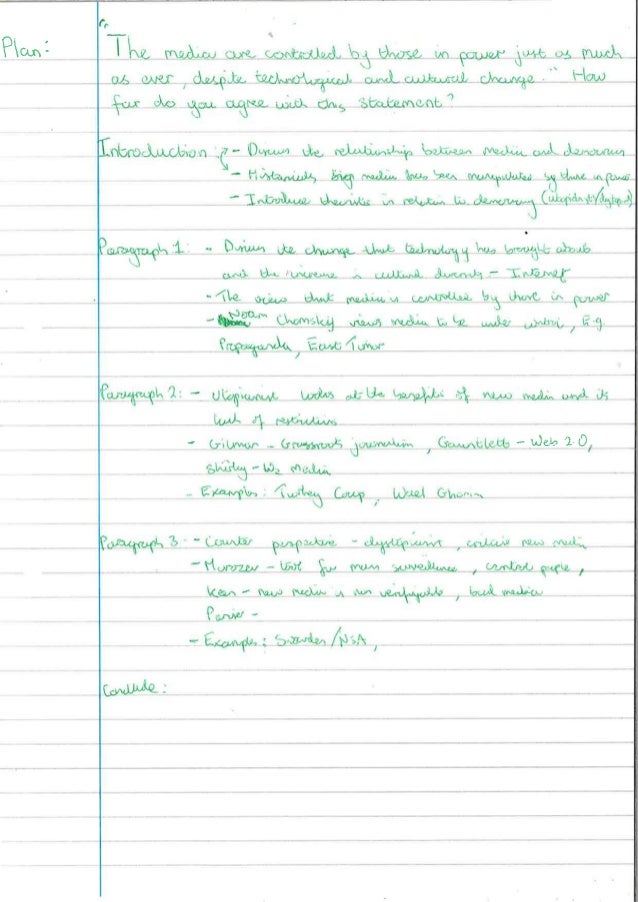 Plan:
"The media are controlled by those in power just as much
as ever, despite technological and cultural change." How
far do you agree with this statement?
Introduction: - Discuss the relationship between media and democracy
- Historically, media has been manipulated by those in power
- Introduce theorists in relation to democracy (utopianist/dystopianist)
Paragraph 1: - Discuss the change that technology has brought about
and the increase in cultural diversity - Internet
- The view that media is controlled by those in power
- Noam Chomsky views media to be under control, E.g.
Propaganda, East Timor
Paragraph 2: - Utopianist looks at the benefits of new media and its
lack of restrictions
- Gilmor - Grassroots journalism, Gauntlett - Web 2.0,
Shirky - We Media
- Examples: Turkey Coup, Wael Ghonim
Paragraph 3: - Counter perspective - dystopianist, criticise new media
- Morozov - tool for mass surveillance, control people,
Keen - new media is non verifiable, bad media
Pariser -
- Examples: Snowden/NSA,
Conclude: